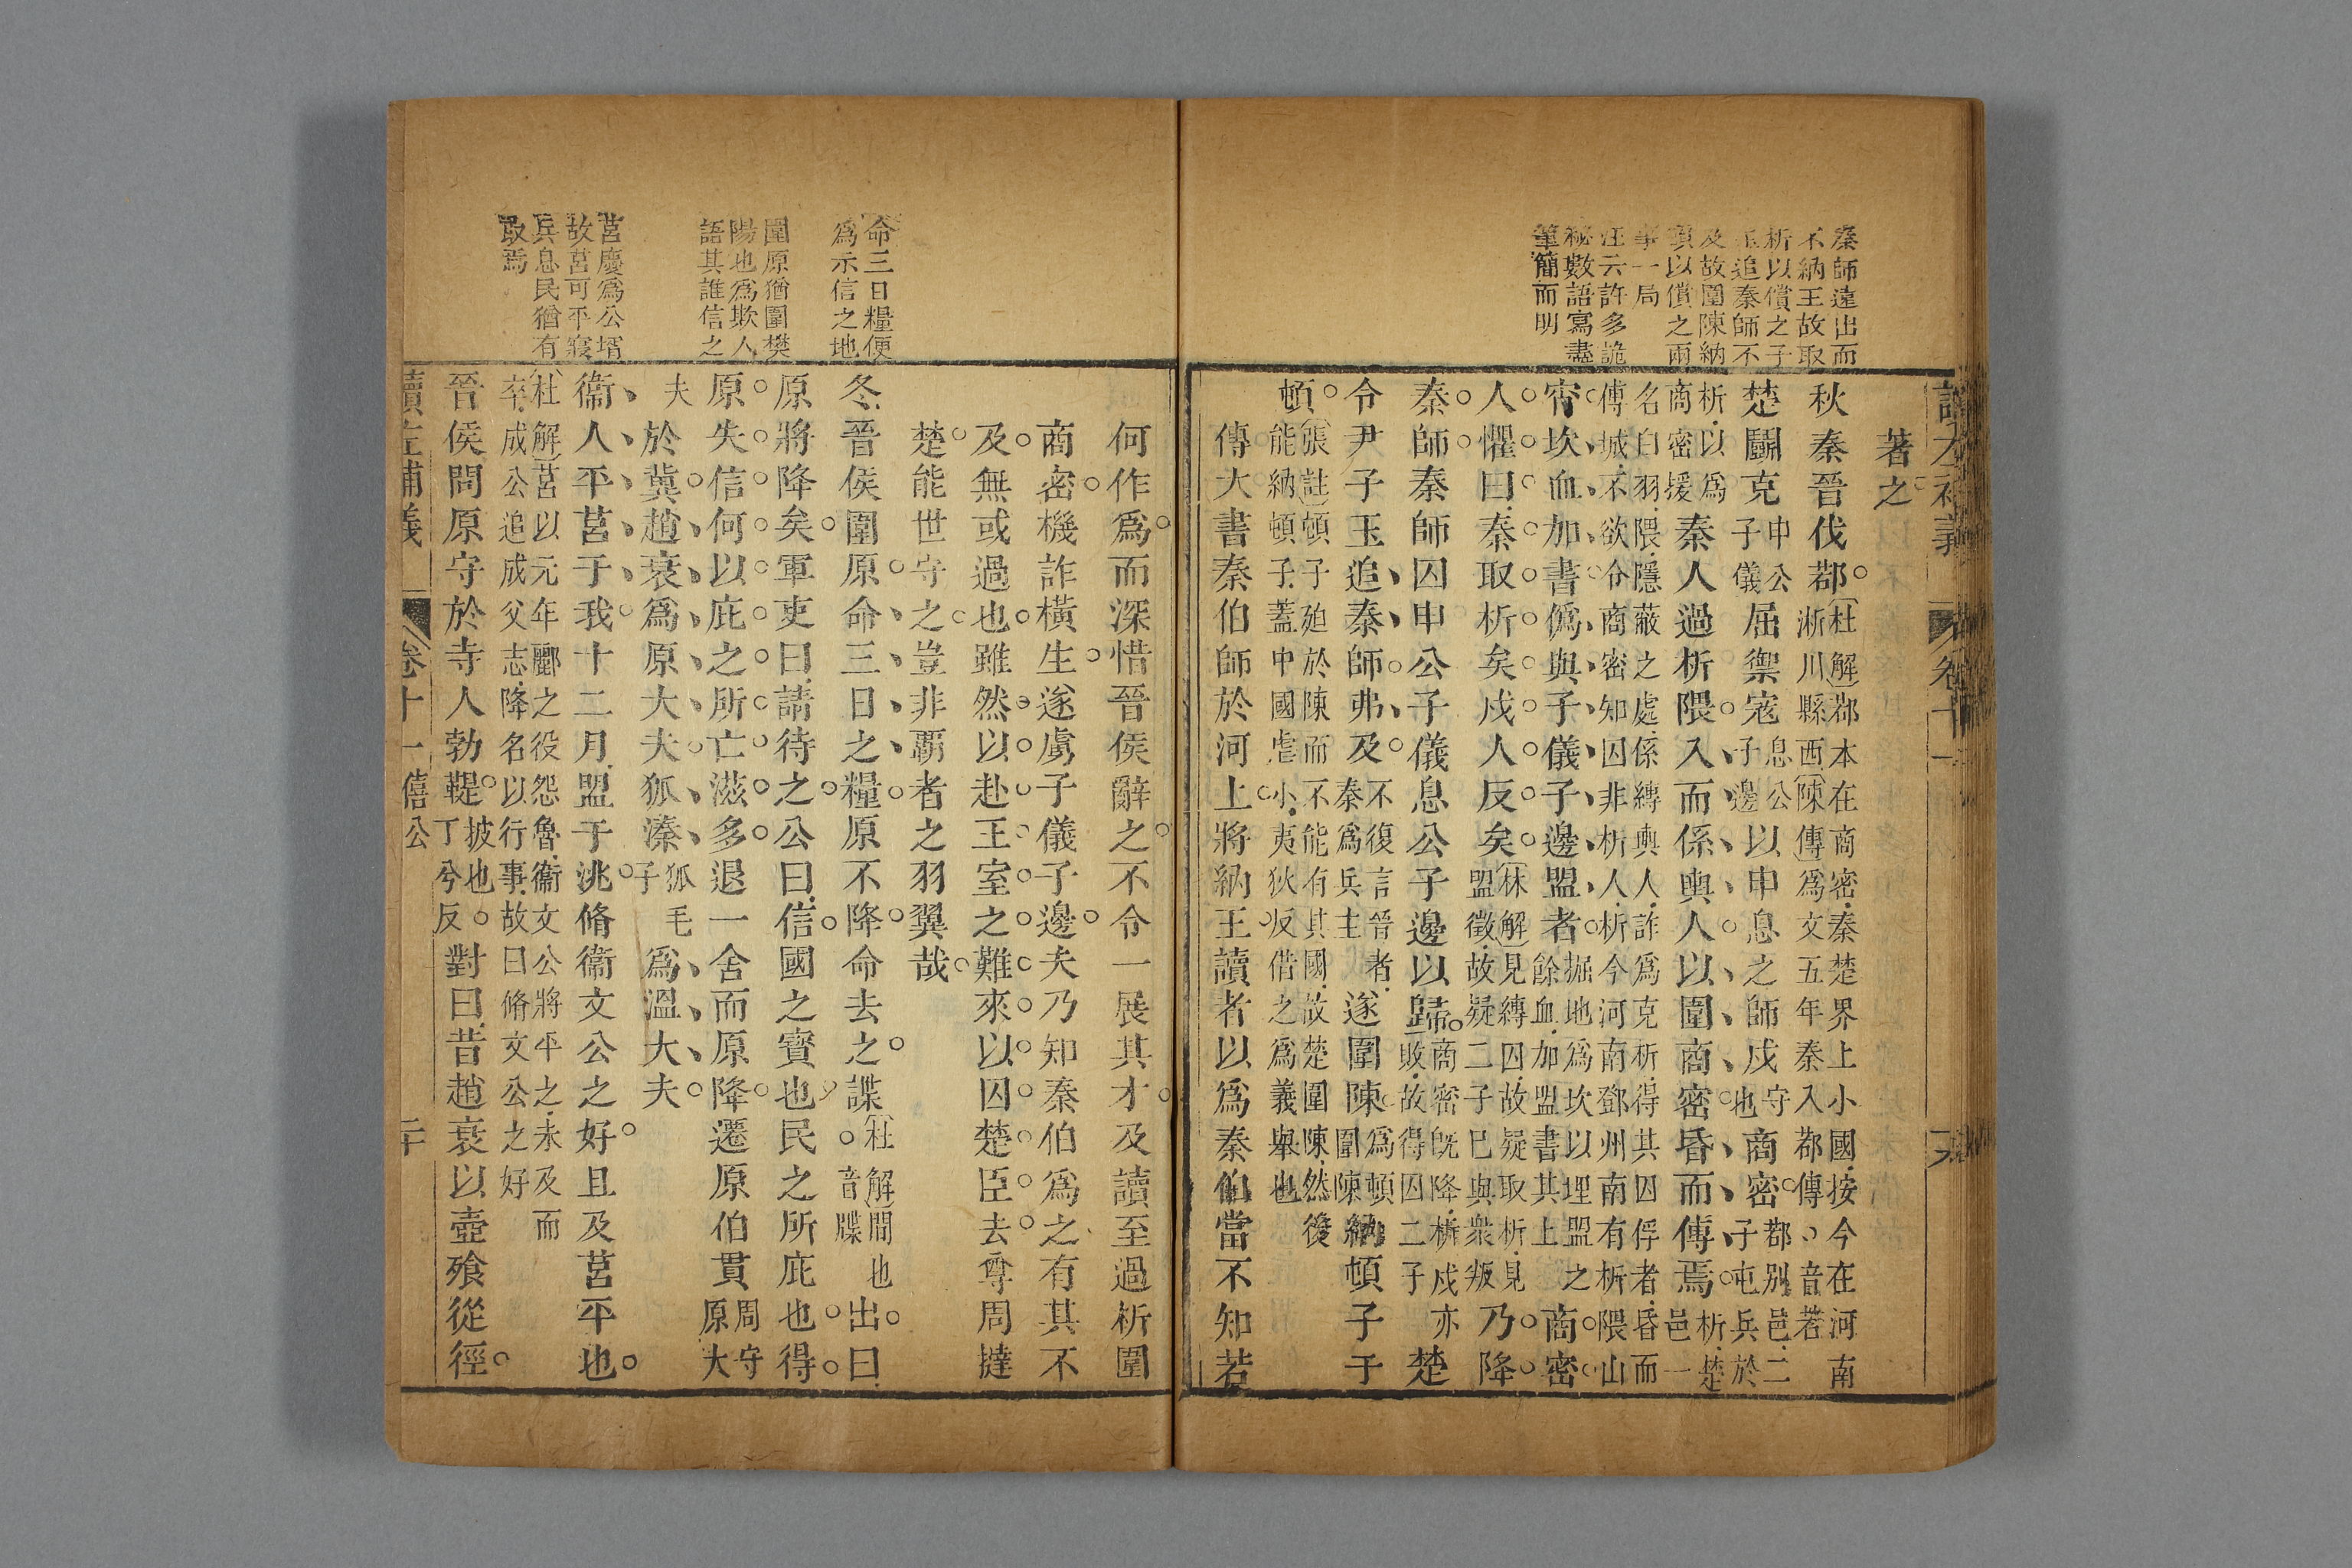 秦師遠出而
不納王故取
析以償之子
玉追秦師不
及故圍陳納
頓以償之兩
事一局
汪云許多詭
秘數語寫盡
筆簡而明
卷十一
著之。
秋秦晉伐鄀。杜解鄀本在商密秦楚界上小國按今在河南淅川縣西陳傳爲文五年秦入鄀傳、音若
楚鬭克申公子儀屈禦寇息公子邊以申息之師戍守也商密。鄀別邑二子屯兵於
析以爲商密援秦人過析隈。入而係輿人。以圍商密。昏而傅焉。析楚邑一
名白羽隈隱蔽之處係縛輿人詐爲克析得其囚俘者昏而傅城不欲令商密知囚非析人析今河南鄧州南有析隈山
宵坎血加書僞與子儀子邊盟者。掘地爲坎以埋盟之餘血加盟書其上商密
人懼曰秦取析矣戍人反矣。林解見縛囚故疑取析見盟徵故疑二子已與衆叛乃降
秦師。秦師囚申公子儀息公子邊以歸。商密旣降析戍亦敗故得囚二子楚
令尹子玉追秦師。弗及。不復言晉者秦爲兵主遂圍陳爲頓圍陳納頓子于
頓。張註頓子廹於陳而不能有其國故楚圍陳然後能納頓子蓋中國虐小夷狄反借之爲義舉也
傳大書秦伯師於河上。將納王。讀者以爲秦伯當不知若
命三日糧便
爲示信之地
圍原猶圍樊
陽也爲欺人
語其誰信之
莒慶爲公壻
故莒可平寢
兵息民猶有
取焉
何作爲。而深惜晉侯辭之。不令一展其才。及讀至過析圍
商密。機詐橫生。遂虜子儀子邊。夫乃知秦伯爲之有其不
及。無或過也。雖然。以赴王室之難。來以囚楚臣。去尊周撻
楚。能世守之。豈非霸者之羽翼哉。
冬晉侯圍原。命三日之糧。原不降。命去之。諜杜解間也音牒出。曰
原將降矣。軍吏曰請待之。公曰信。國之寶也民之所庇也。得
原。失信。何以庇之。所亡滋多。退一舍而原降。遷原伯貫周守原大
夫於冀。趙衰爲原大夫。狐溱狐毛子爲溫大夫。
衞人平莒于我。十二月盟于洮。脩衞文公之好。且及莒平也。
杜解莒以元年酈之役怨魯衞文公將平之未及而卒成公追成父志降名以行事故曰脩文公之好
晉侯問原守於寺人勃鞮。披也丁兮反。對曰昔趙衰以壺飱從徑。
讀左補義 卷十一 僖公 二十